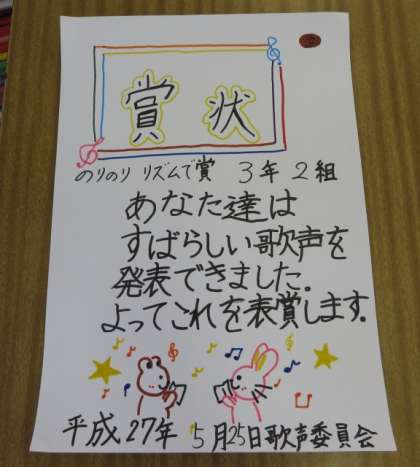 賞状
のりのり リズムで賞 3年2組
あなた達は
すばらしい歌声を
発表できました.
よってこれを表賞します.
平成27年 5月25日歌声委員会